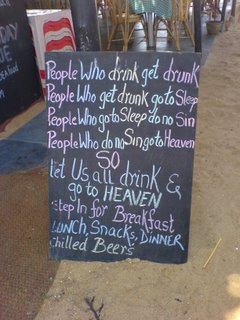 People Who drink get drunk
People Who get drunk go to Sleep
People Who go to Sleep do no Sin
People Who do no Sin go to Heaven
SO
let Us all drink &
go to HEAVEN
Step In for Breakfast
LUNCH, Snacks, DINNER
Chilled Beers